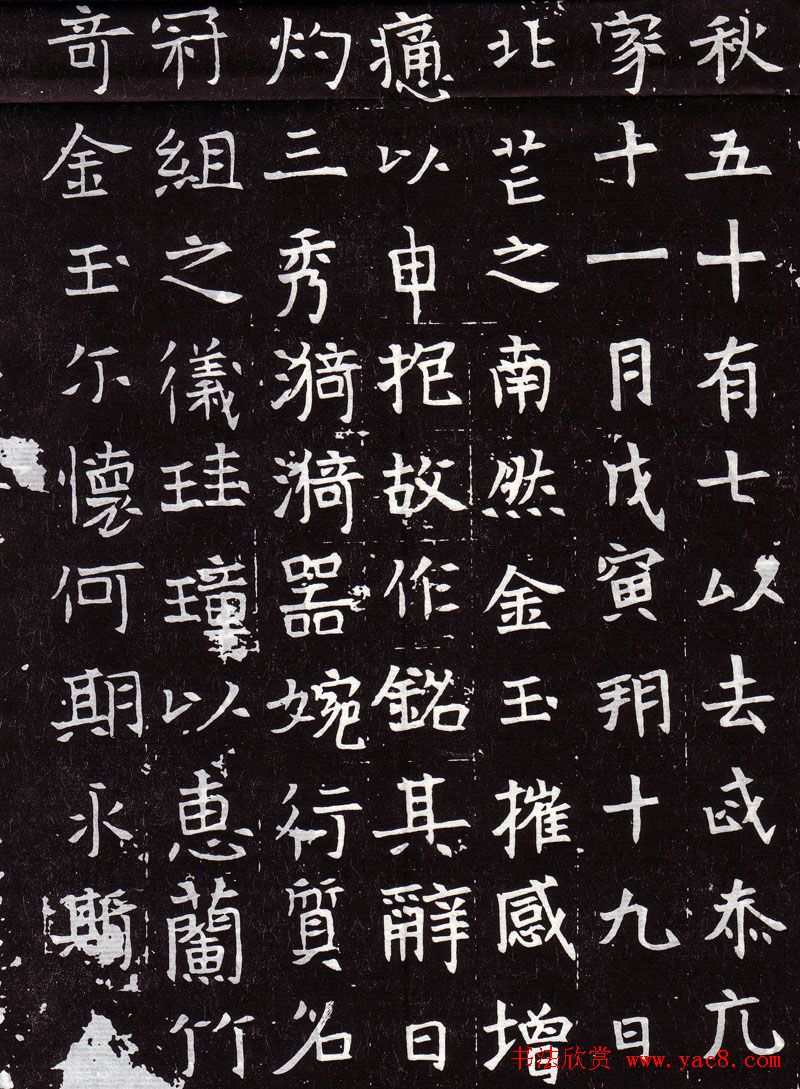 秋五十有七以去武泰元
家十一月戊寅朔十九日
北芒之南然金玉摧感增
痛以申抱故作銘其辭曰
灼三秀漪漪器婉行質名
冠組之儀珪璋以惠蘭竹
奇金玉尒懷何期永斯
书法欣赏 www.yac8.com